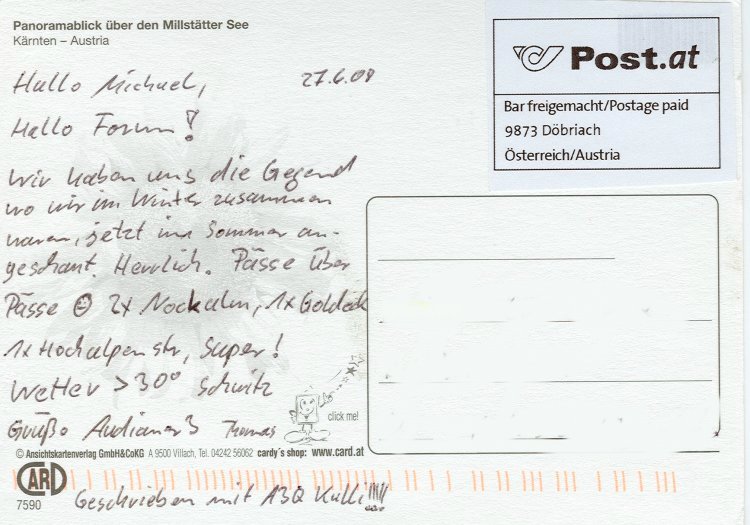 Panoramablick über den Millstätter See
Kärnten – Austria
Hallo Michael, 27.6.08
Hallo Forum!
Wir haben uns die Gegend
wo wir im Winter zusammen
waren, jetzt im Sommer an-
geschaut. Herrlich. Pässe über
Pässe ☺ 2x Nockalm, 1x Goldeck
1x Hochalpenstr, Super!
Wetter >30° schwitz
Grüße Thomas
click me!
© Ansichtskartenverlag GmbH&CoKG A 9500 Villach, Tel. 04242 56062 cardy´s shop: www.card.at
CARD
7590
Geschrieben mit A3Q Kulli!!!!!
Post.at
Bar freigemacht/Postage paid
9873 Döbriach
Österreich/Austria